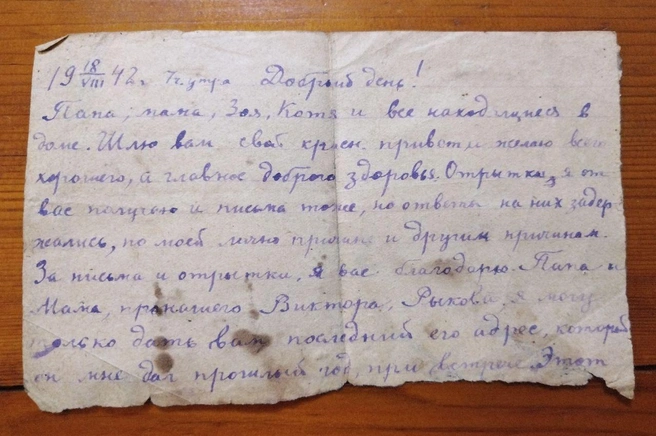 19 18/VIII 42 г. 7 ч. утра Добрый день!
Папа, мама, Зоя, Котя и все находящиеся в
доме. Шлю вам свой красн. привет и желаю всего
хорошего, а главное доброго здоровья. Отрытки я от
вас получаю и письма тоже, но ответы на них задер-
жались, по моей лично причине и другим причинам.
За письма и отрытки, я вас благодарю. Папа и
Мама, про нашего Виктора, Рыкова, я могу
только дать вам последний его адрес, который
он мне дал прошлый год, при встречи. Этот